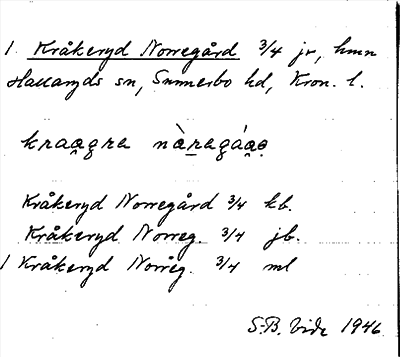 1. Kråkeryd Norregård 3/4 jr, hmn
Hallaryds sn, Sunnerbo hd, Kron. l.
kraagra nàragáa
Kråkeryd Norregård 3/4 kb.
Kråkeryd Norreg. 3/4 jb.
1 Kråkeryd Norreg. 3/4 ml
S-B. Vide 1946